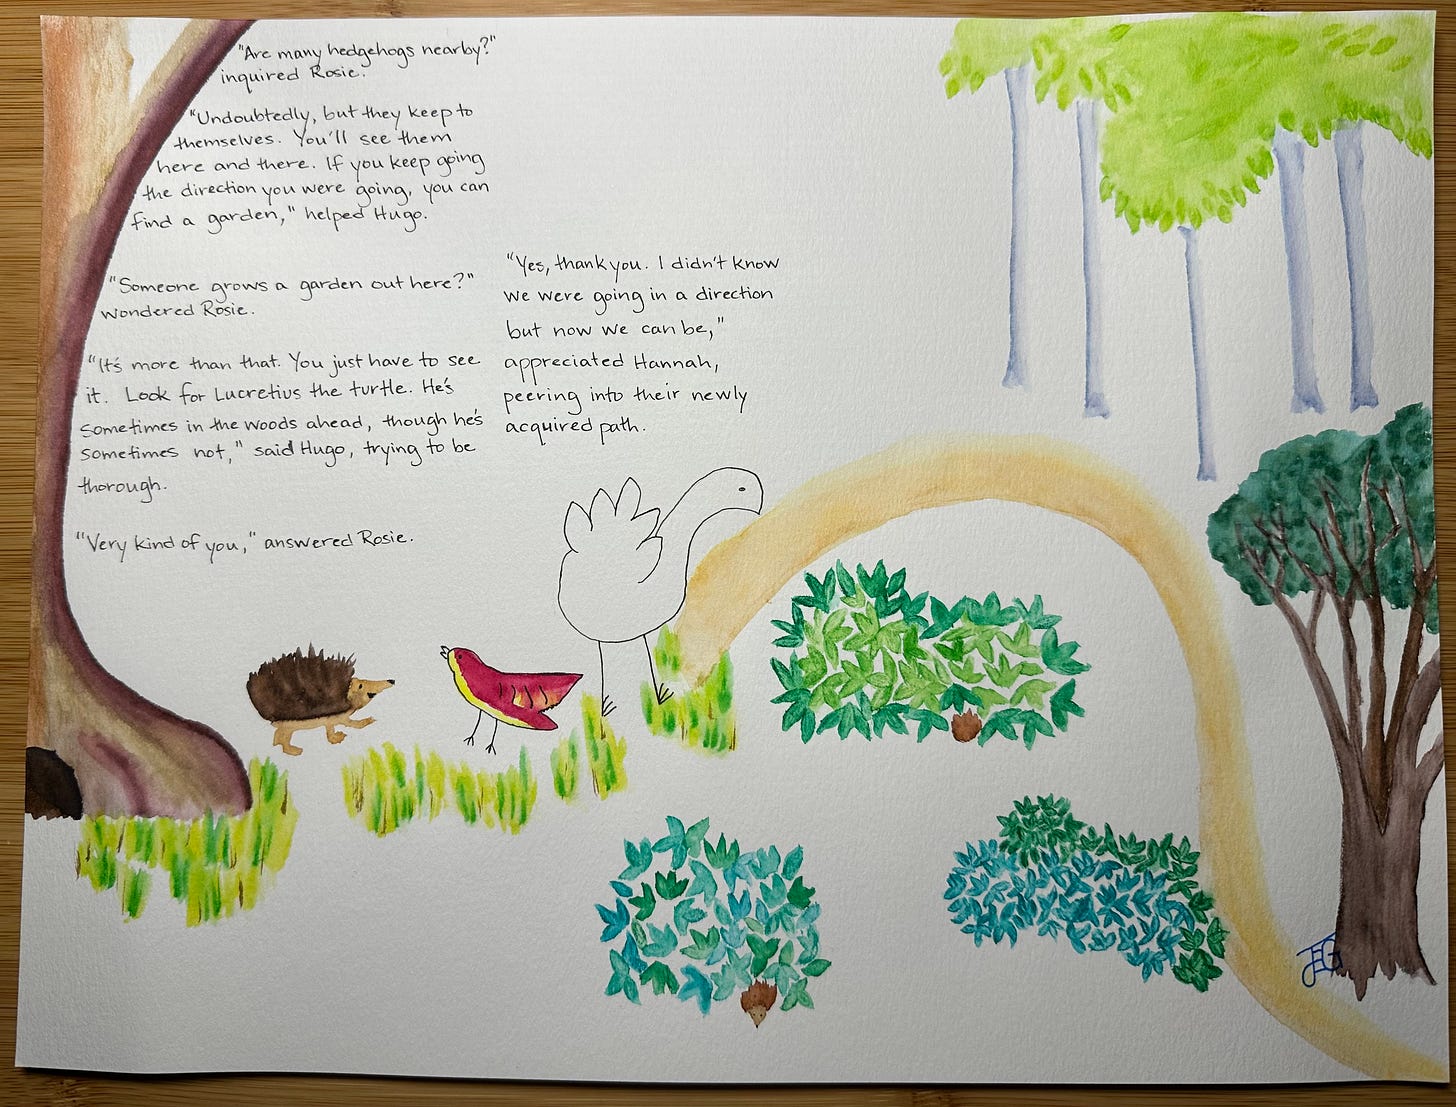 "Are many hedgehogs nearby?"
inquired Rosie.
"Undoubtedly, but they keep to
themselves. You'll see them
here and there. If you keep going
the direction you were going, you can
find a garden," helped Hugo.
"Someone grows a garden out here?"
wondered Rosie.
"It's more than that. You just have to see
it. Look for Lucretius the turtle. He's
sometimes in the woods ahead, though he's
sometimes not," said Hugo, trying to be
thorough.
"Very kind of you," answered Rosie.
"Yes, thank you. I didn't know
we were going in a direction
but now we can be,"
appreciated Hannah,
peering into their newly
acquired path.
JEG